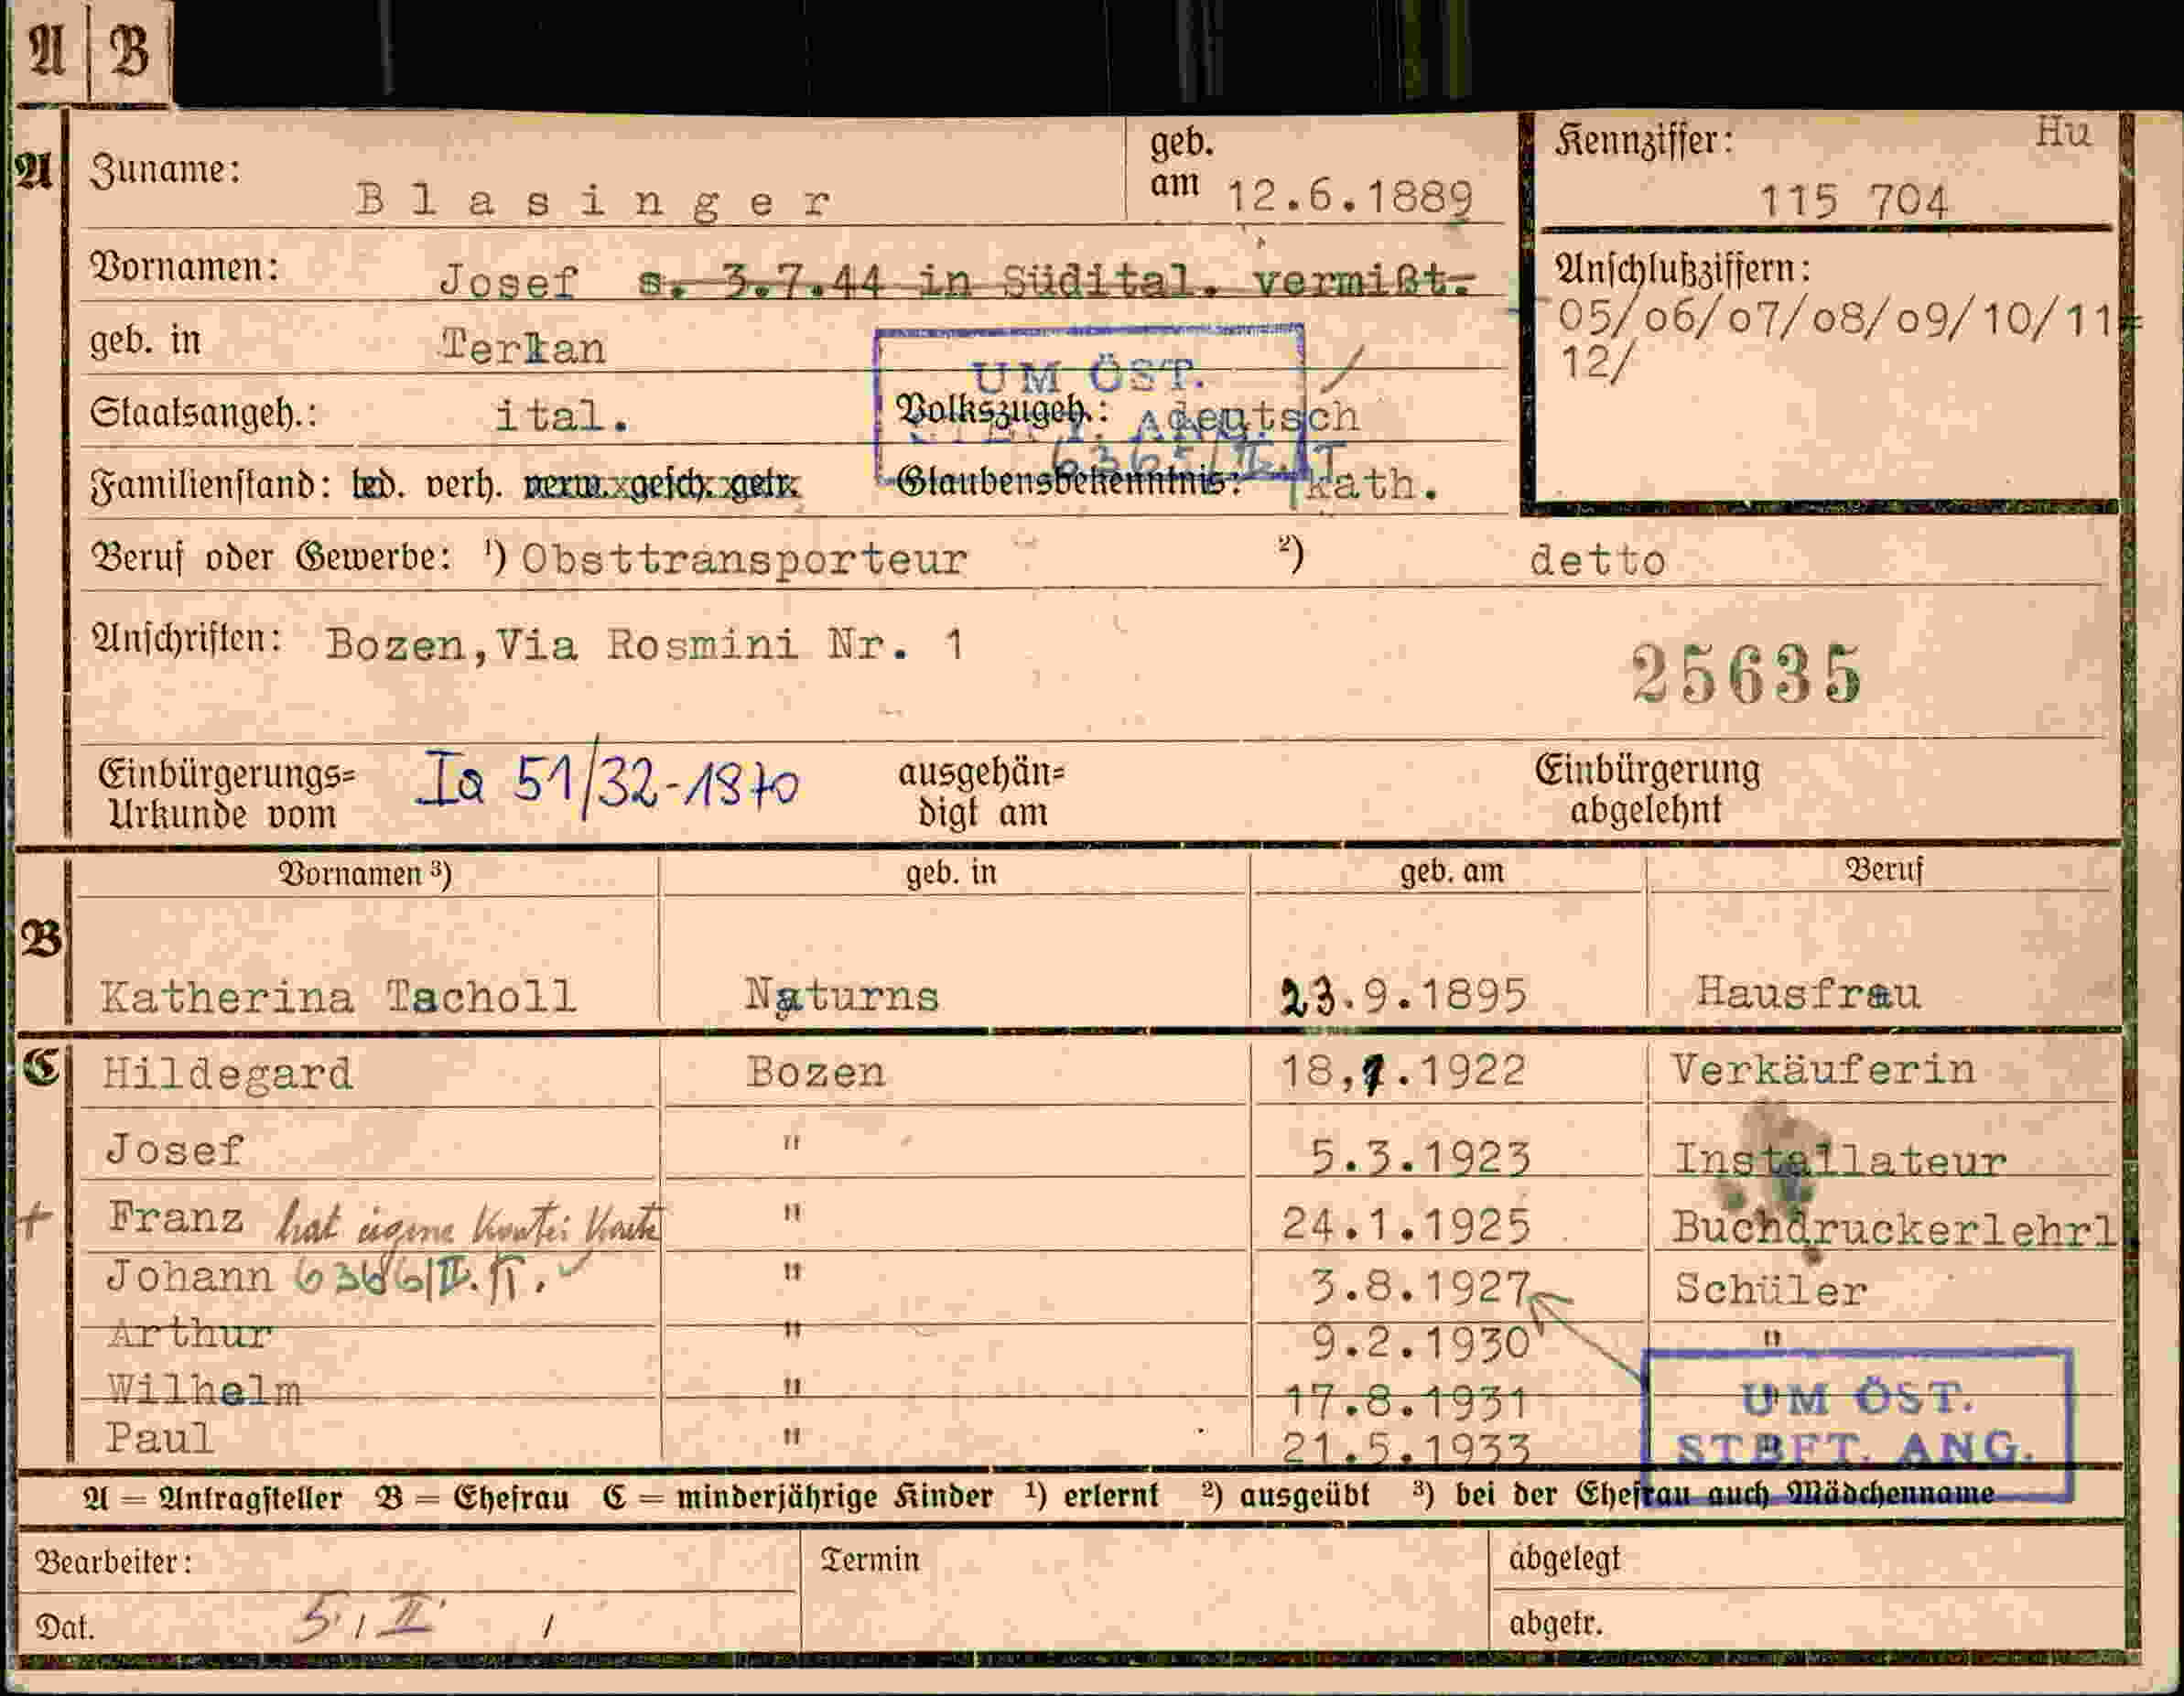 A B
A Zuname: Blasinger geb. am 12.6.1889
Kennziffer: Hu
115 704
Vornamen: Josef s. 3.7.44 in Südital. vermißt.
Anschlußziffern:
05/06/07/08/09/10/11
12/
geb. in Terlan
UM ÖST.
Staatsangeh.: ital. Volkszugeh.: deutsch
Familienstand: led. verh. verw. gesch. getr. Glaubensbekenntnis: kath.
Beruf oder Gewerbe: ¹) Obsttransporteur ²) detto
Anschriften: Bozen, Via Rosmini Nr. 1
25635
Einbürgerungs= Urkunde vom Ia 51/32-1870 ausgehän= digt am Einbürgerung abgelehnt
Vornamen ³) geb. in geb. am Beruf
B Katherina Tacholl Naturns 23.9.1895 Hausfrau
C Hildegard Bozen 18,7.1922 Verkäuferin
Josef " 5.3.1923 Installateur
+ Franz hat eigene Kartei Karte " 24.1.1925 Buchdruckerlehrl
Johann 6366/II. " 3.8.1927 Schüler
Arthur " 9.2.1930 "
Wilhelm " 17.8.1931
Paul " 21.5.1933
UM ÖST.
STBFT. ANG.
A = Antragsteller B = Ehefrau C = minderjährige Kinder ¹) erlernt ²) ausgeübt ³) bei der Ehefrau auch Mädchenname
Bearbeiter: Termin abgelegt
Dat. 5., II. / abgetr.